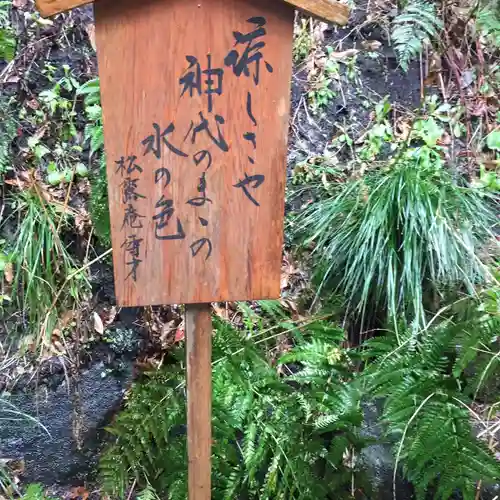 涼しさや
神代のまゝの
水の色
松蔭庵雪才